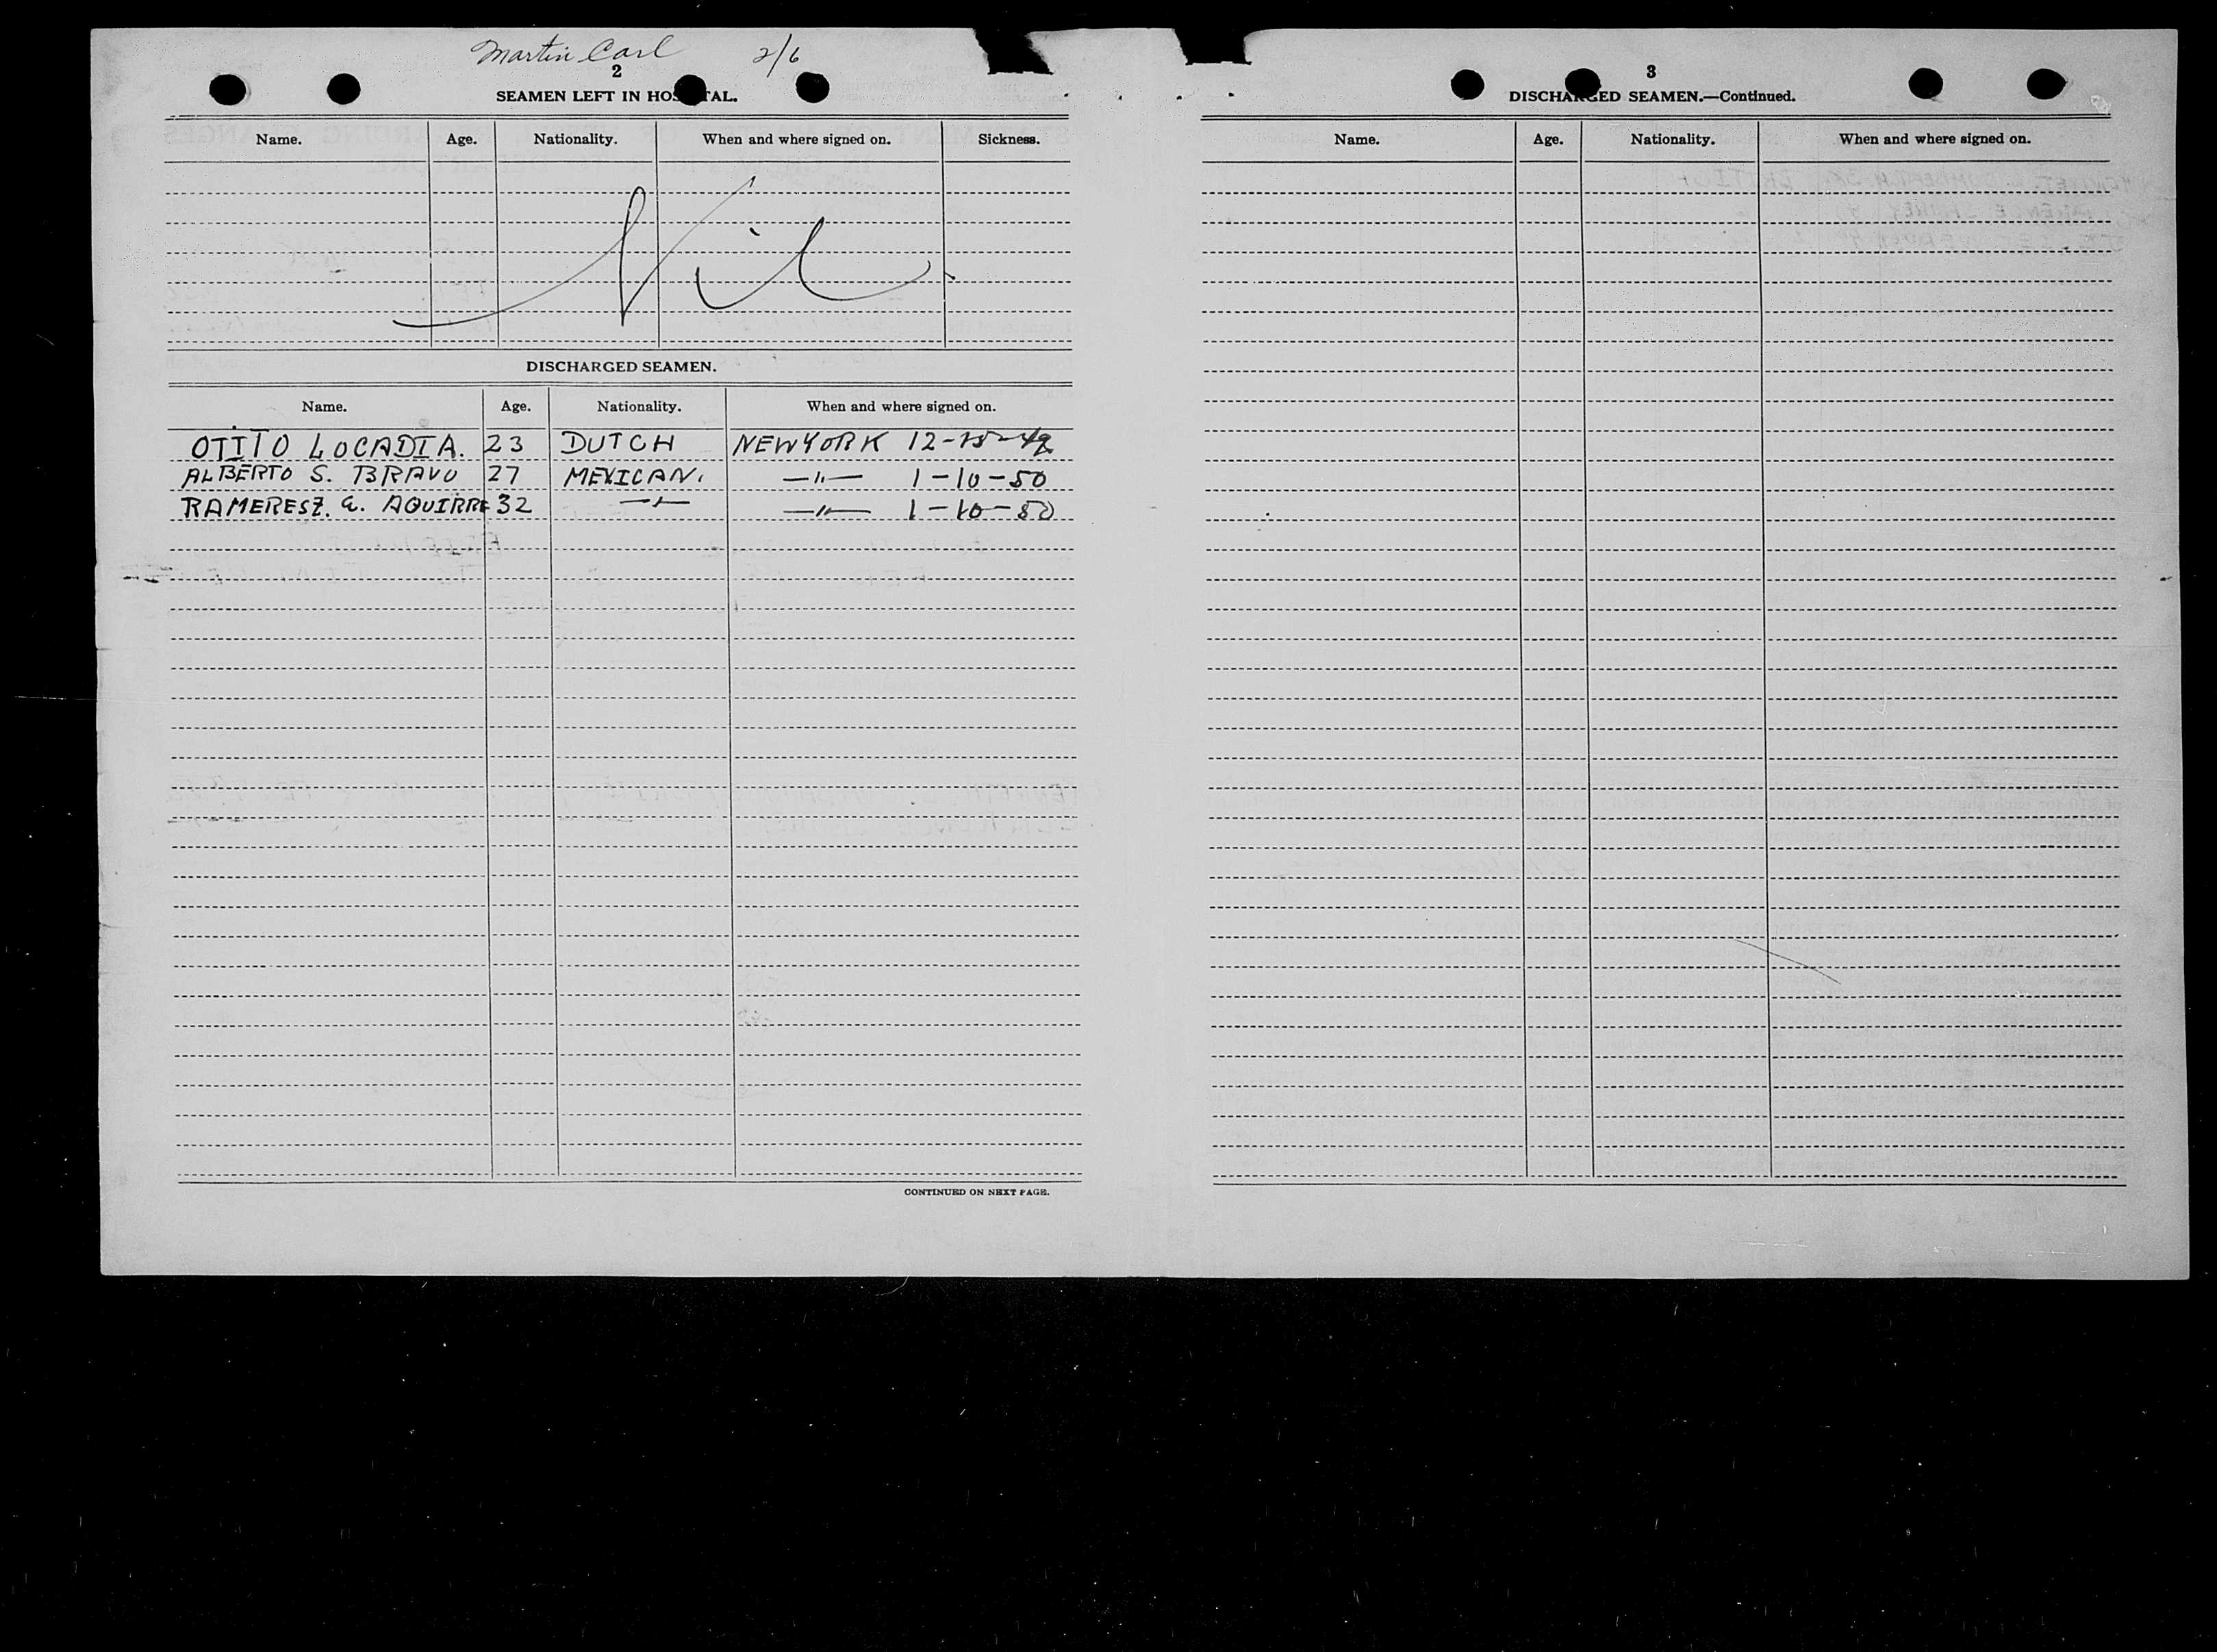 Martin Carl 2/6
2
SEAMEN LEFT IN HOSPITAL.
Name. Age. Nationality. When and where signed on. Sickness.
Nil
DISCHARGED SEAMEN.
Name. Age. Nationality. When and where signed on.
OTITO LOCADIA. 23 DUTCH NEWYORK 12-15-49
ALBERTO S. BRAVO 27 MEXICAN. —"— 1-10-50
RAMERESZ. G. AQUIRRE 32 —"— —"— 1-10-50
CONTINUED ON NEXT PAGE.
3
DISCHARGED SEAMEN.—Continued.
Name. Age. Nationality. When and where signed on.